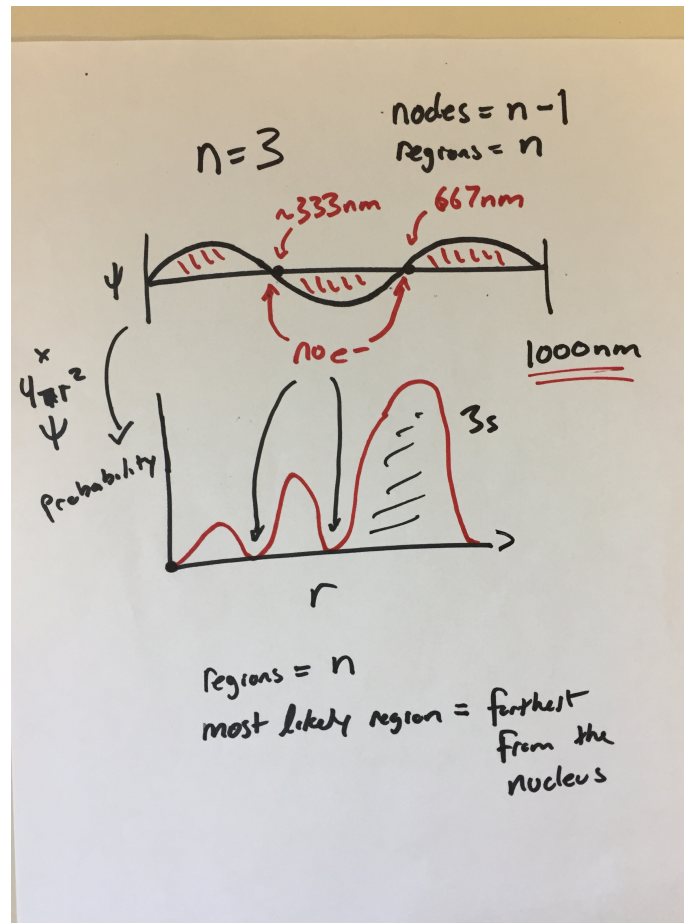 n = 3
nodes = n - 1
regions = n
~333nm
667nm
ψ
no e-
1000nm
x
4πr²
ψ
Probability
3s
r
regions = n
most likely region = farthest
from the
nucleus